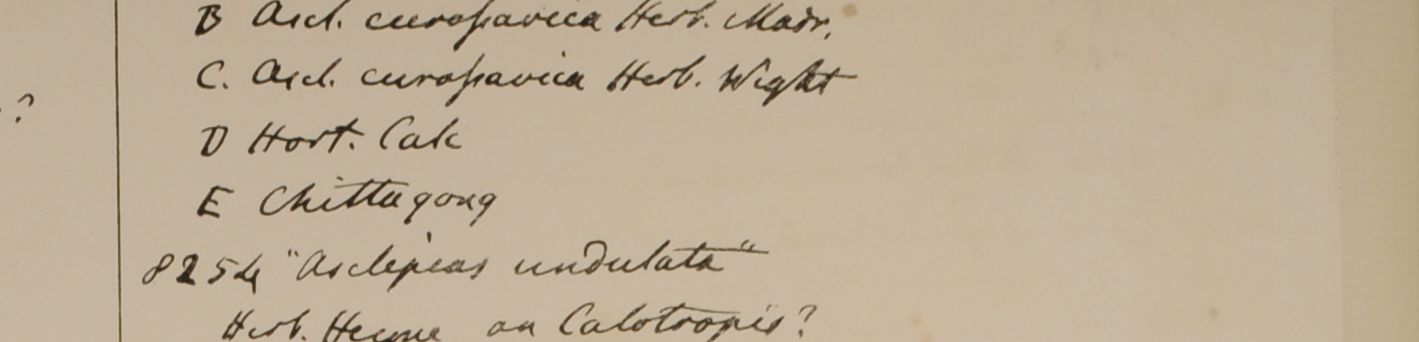 B Ascl. curassavica Herb. Madr.
C. Ascl. curassavica Herb. Wight
?
D Hort. Calc
E Chittagong
8254 "Asclepias undulata"
Herb. Heyne an Calotropis?